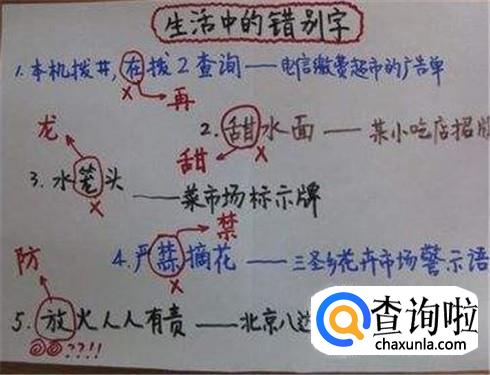 生活中的错别字
1. 本机拨井,在拨2查询——电信缴费超市的广告单
x 再
龙
2. 甜水面——菜小吃店招牌
甜 x
3. 水笼头——菜市场标示牌
x
禁
4. 严禁摘花——三圣乡花卉市场警示语
x
防
5. 放火人人有责——北京八达
??!!
查询啦
chaxunla.com